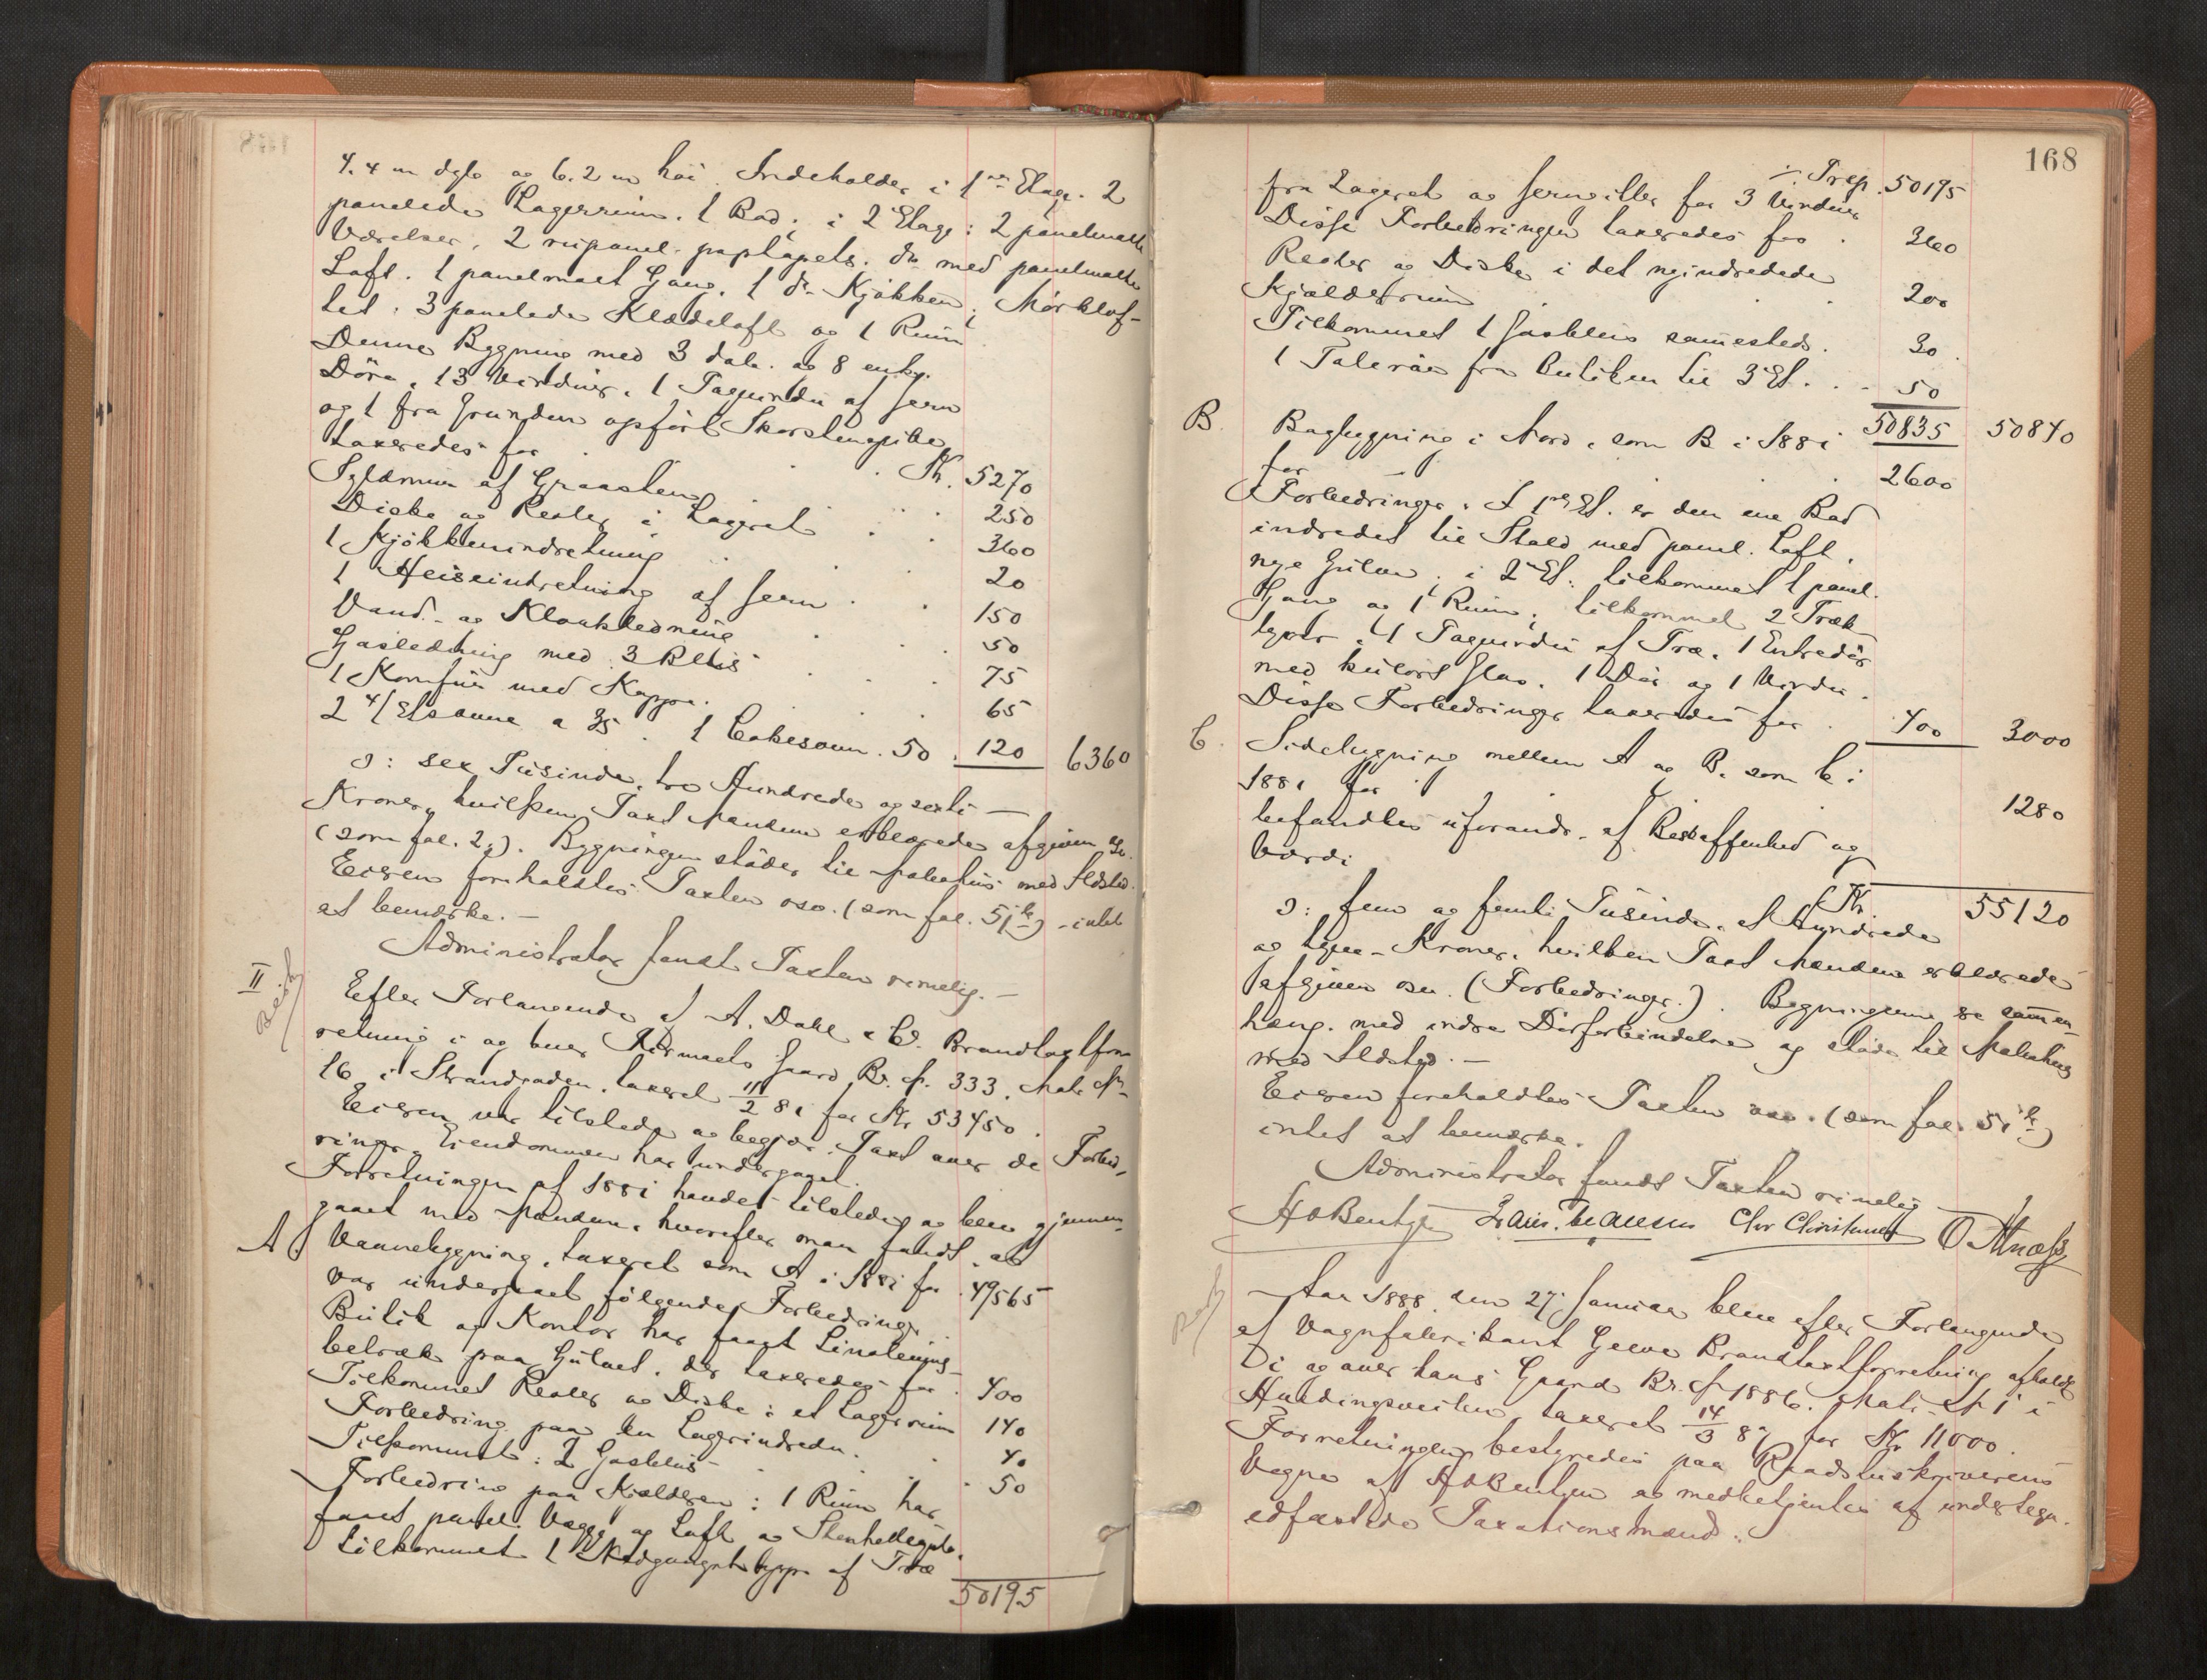 4.4 m dyb og 6.2 m høi. Indeholder i 1ste Etage. 2
panelede Lagerrum. 1 Bod; i 2 Etage: 2 panelmalte
Værelser, 2 rupanel. paptapets. do med panelmalte
Loft. 1 panelmalt Gang. 1 do Kjøkken; Mørklof-
tet: 3 panelede Klædeloft og 1 Rum
Denne Bygning med 3 dob. og 8 enky.
Døre, 13 Vinduer, 1 Tagvindu af Jern
og 1 fra Grunden opført Skorstenspibe
taxeredes for . . Kr. 5270
Sydmur af Graasten . . 250
Diske og Reoler i Lageret . . 360
1 Kjøkkenindretning . . 20
1 Heiseindretning af Jern . . 150
Vand- og Kloakledning . . 50
Gasledning med 3 Blus . . 75
1 Komfur med Kappe . . 65
2 4/Etsovne a 35 . 1 Cokesovn . 50 . 120 6360
ɔ: sex Tusinde, tre Hundrede og sexti —
Kroner, hvilken Taxt Mændene erklærede afgiven osv.
(som fol. 2). Bygningen støder til Nabohus med Ildsted.
Eieren foreholdtes Taxten osv. (som fol. 51) - intet
at bemærke. —
Administrator fandt Taxten rimelig. —
II Efter Forlangende af A. Dahl & Co. Brandtaxtfor-
retning i og over Firmaets Gaard Br. No. 333. Matr No
16 i Strandgaden, taxeret 11/2 81 for Kr 53450.
Eieren var tilstede og begjær. Taxt over de Forbed-
ringer Eiendommen har undergaaet.
Forretningen af 1881 havdes tilstede og blev gjennem-
gaaet med Mændene, hvorefter man fandt, at
A Vaanebygning, taxeret som A i 1881 for . 49565
var undergaaet følgende Forbedringer
Butik og Kontor har faaet Linoleums-
betræk paa Gulvet, der taxeredes for . 400
Tilkommet Reoler og Diske i et Lagerrum 140
Forbedring paa en Lagerindredn. . 40
Tilkommet: 2 Gasblus . . 50
Forbedring paa Kjælderen: 1 Rum har
faaet panel. Vægge og Loft og Stenhellegulv.
Tilkommet 1 Nedgangstrappe af Træ
50195
168
÷ Trsp. 50195
fra Lageret og Jerngitter for 3 Vinduer
Disse Forbedringer taxeredes for . 360
Reoler og Diske i det nyindredede
Kjælderrum . . . 200
Tilkommet 1 Gasblus sammesteds . 30
1 Talerør fra Butiken til 3 Et. . . 50
50835 50840
B. Bagbygning i Nord, som B i 1881
for . . . 2600
Forbedringer. I 1ste Et. er den ene Bod
indredet til Stald med panel. Loft.
nye Gulve; i 2 Et: tilkommet 1 panel.
Gang og 1 Rum; tilkommet 2 Træ-
trapper, 1 Tagvindu af Træ, 1 Entredør
med kulørt Glas. 1 Dør og 1 Vindu.
Disse Forbedringer taxeredes for . 400 3000
C. Sidebygning mellem A og B. som C i
1881 for . . . 1280
befandtes uforandr. af Beskaffenhed og
Værdi
Kr 55120
ɔ: fem og femti Tusinde, et Hundrede
og tyve - Kroner, hvilken Taxt Mændene erklærede
afgiven osv. (Forbedringer.). Bygningerne er sammen-
hæng. med indre Dørforbindelse og støder til Nabohus
med Ildsted. —
Eieren foreholdtes Taxten osv. (som fol. 51)
intet at bemærke.
Administrator fandt Taxten rimelig
HOBentzen Chr Christensen
Aar 1888 den 27. Januar blev efter Forlangende
af Vagnfabrikant Brandtaxtforretning afholdt
i og over hans Gaard Br. No 1886. Matr. No 1 i
taxeret 14/3 87 for Kr 11000.
Forretningen bestyredes paa Raadstueskriverens
Vegne af HOBentzen og medbetjentes af undertegn.
edfæstede Taxationsmænd: